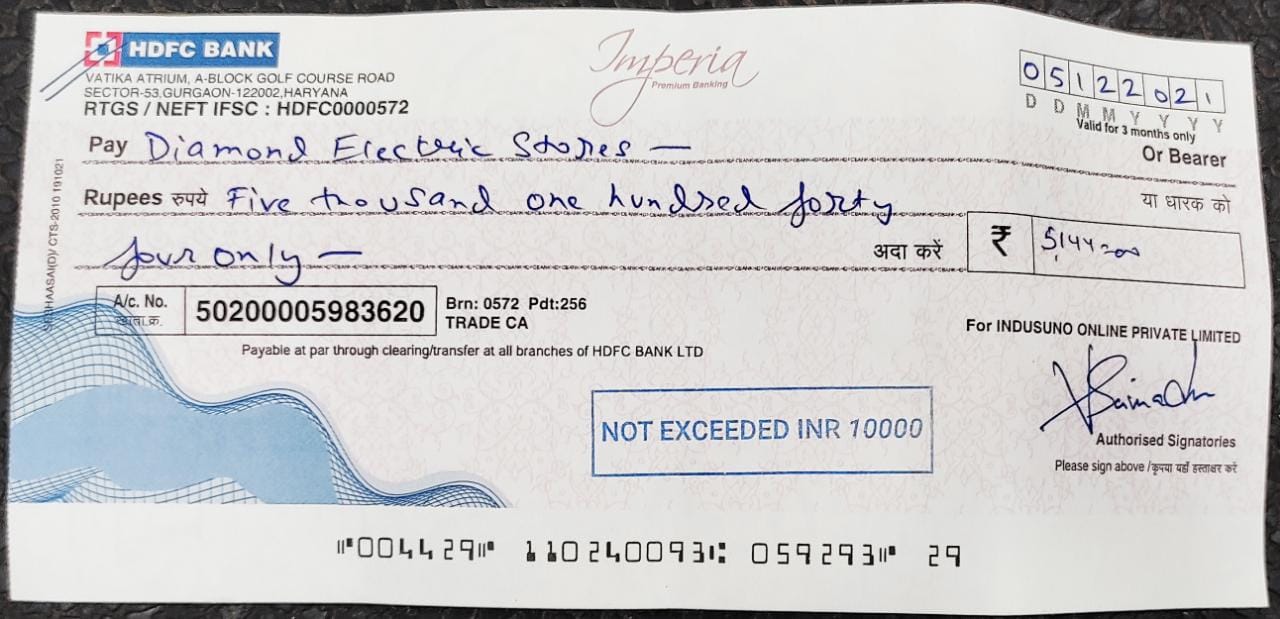 HDFC BANK
Imperia
Premium Banking
VATIKA ATRIUM, A-BLOCK GOLF COURSE ROAD
SECTOR-53,GURGAON-122002,HARYANA
RTGS / NEFT IFSC : HDFC0000572
05122021
D D M M Y Y Y Y
Valid for 3 months only
Pay Diamond Electric Stores —
Or Bearer
Rupees रुपये Five thousand one hundred forty
या धारक को
four only —
अदा करें ₹ 5,144=00
A/c. No. 50200005983620
Brn: 0572 Pdt:256
TRADE CA
Payable at par through clearing/transfer at all branches of HDFC BANK LTD
For INDUSUNO ONLINE PRIVATE LIMITED
NOT EXCEEDED INR 10000
Authorised Signatories
Please sign above /कृपया यहाँ हस्ताक्षर करें
CTS-2010 191021
⑈004429⑈ 110240093⑆ 059293⑈ 29